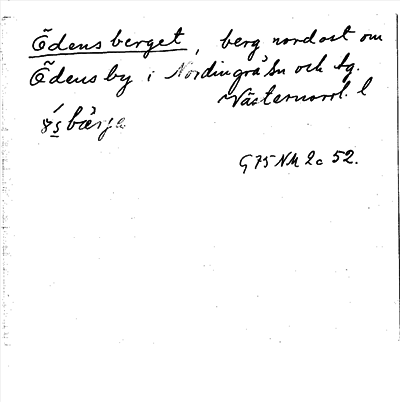 Ödensberget, berg nordost om
Ödensby i Nordingrå sn och tg.
Västernorrl. l
G 75 NM 2c 52.